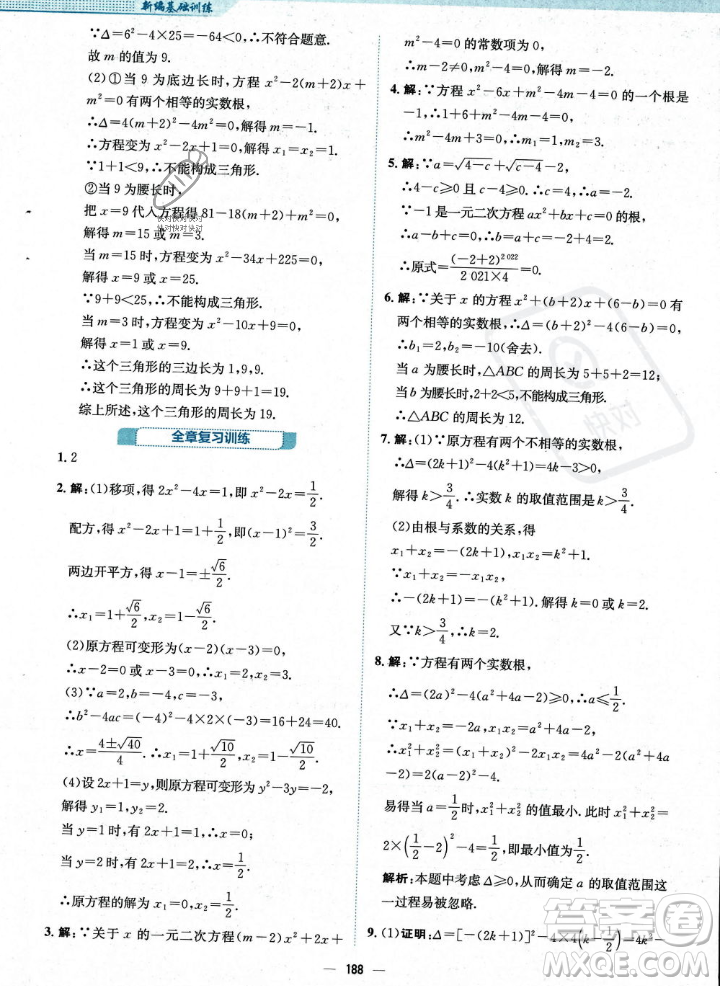 新编基础训练
∴Δ=6²-4×25=-64<0,∴不符合题意.
故 m 的值为 9.
(2)①当 9 为底边长时,方程 x²-2(m+2)x+
m²=0 有两个相等的实数根,
∴Δ=4(m+2)²-4m²=0,解得 m=-1.
∴方程变为 x²-2x+1=0,解得 x₁=x₂=1.
∵1+1<9,∴不能构成三角形.
②当 9 为腰长时,
把 x=9 代入方程得 81-18(m+2)+m²=0,
解得 m=15 或 m=3.
当 m=15 时,方程为 x²-34x+225=0,
解得 x=9 或 x=25.
∵9+9<25,∴不能构成三角形.
当 m=3 时,方程为 x²-10x+9=0,
解得 x=1 或 x=9.
∴这个三角形的三边长为 1,9,9.
∴这个三角形的周长为 9+9+1=19.
综上所述,这个三角形的周长为 19.
全章复习训练
1. 2
2. 解:(1)移项,得 2x²-4x=1,即 x²-2x=1/2.
配方,得 x²-2x+1=1+1/2,即(x-1)²=3/2.
两边开平方,得 x-1=±√6/2.
∴x₁=1+√6/2,x₂=1-√6/2.
(2)原方程可变形为(x-2)(x-3)=0,
∴x-2=0 或 x-3=0,∴x₁=2,x₂=3.
(3)∵a=2,b=-4,c=-3,
∴b²-4ac=(-4)²-4×2×(-3)=16+24=40.
∴x=(4±√40)/4.∴x₁=1+√10/2,x₂=1-√10/2.
(4)设 2x+1=y,则原方程可变形为 y²-3y=-2,
解得 y₁=1,y₂=2.
当 y=1 时,有 2x+1=1,∴x=0;
当 y=2 时,有 2x+1=2,∴x=1/2.
∴原方程的解为 x₁=0,x₂=1/2.
3. 解:∵关于 x 的一元二次方程(m-2)x²+2x+
m²-4=0 的常数项为 0,
∴m-2≠0,m²-4=0,解得 m=-2.
4. 解:∵方程 x²-6x+m²-4m-4=0 的一个根是
-1,∴m²-4m+3=0.∴m₁=1,m₂=3.
5. 解:∵a=√4-c+√c-4-2,
∴4-c≥0 且 c-4≥0,即 c=4,则 a=-2.
∵-1 是一元二次方程 ax²+bx+c=0 的根,
∴a-b+c=0.∴b=a+c=-2+4=2.
∴原式=(-2+2)²⁰²²/(2 021×4)=0.
6. 解:∵关于 x 的方程 x²+(b+2)x+(6-b)=0 有
两个相等的实数根,∴Δ=(b+2)²-4(6-b)=0,
∴b₁=2,b₂=-10(舍去).
当 a 为腰长时,△ABC 的周长为 5+5+2=12;
当 b 为腰长时,2+2<5,不能构成三角形.
∴△ABC 的周长为 12.
7. 解:(1)∵原方程有两个不相等的实数根,
∴Δ=(2k+1)²-4(k²+1)=4k-3>0,
解得 k>3/4.∴实数 k 的取值范围是 k>3/4.
(2)由根与系数的关系,得
x₁+x₂=-(2k+1),x₁·x₂=k²+1.
∵x₁+x₂=-x₁·x₂,
∴-(2k+1)=-(k²+1),解得 k=0 或 k=2.
又∵k>3/4,∴k=2.
8. 解:∵方程有两个实数根,
∴Δ=(2a)²-4(a²+4a-2)≥0,∴a≤1/2.
∵x₁+x₂=-2a,x₁x₂=a²+4a-2,
∴x₁²+x₂²=(x₁+x₂)²-2x₁x₂=2(a-2)²-4.
∵a≤1/2,
易得当 a=1/2 时,x₁²+x₂² 的值最小.此时 x₁²+x₂²=
2×(1/2-2)²-4=1/2,即最小值为1/2.
解析:本题中考虑 Δ≥0,以确定 a 的取值范围这
一过程易被忽略.
9. (1)证明:∵Δ=[-(2k+1)]²-4×4(k-1/2)=4k²-
188
快对快对快对
快对快对快对
快对
答案圈
MXQE.COM